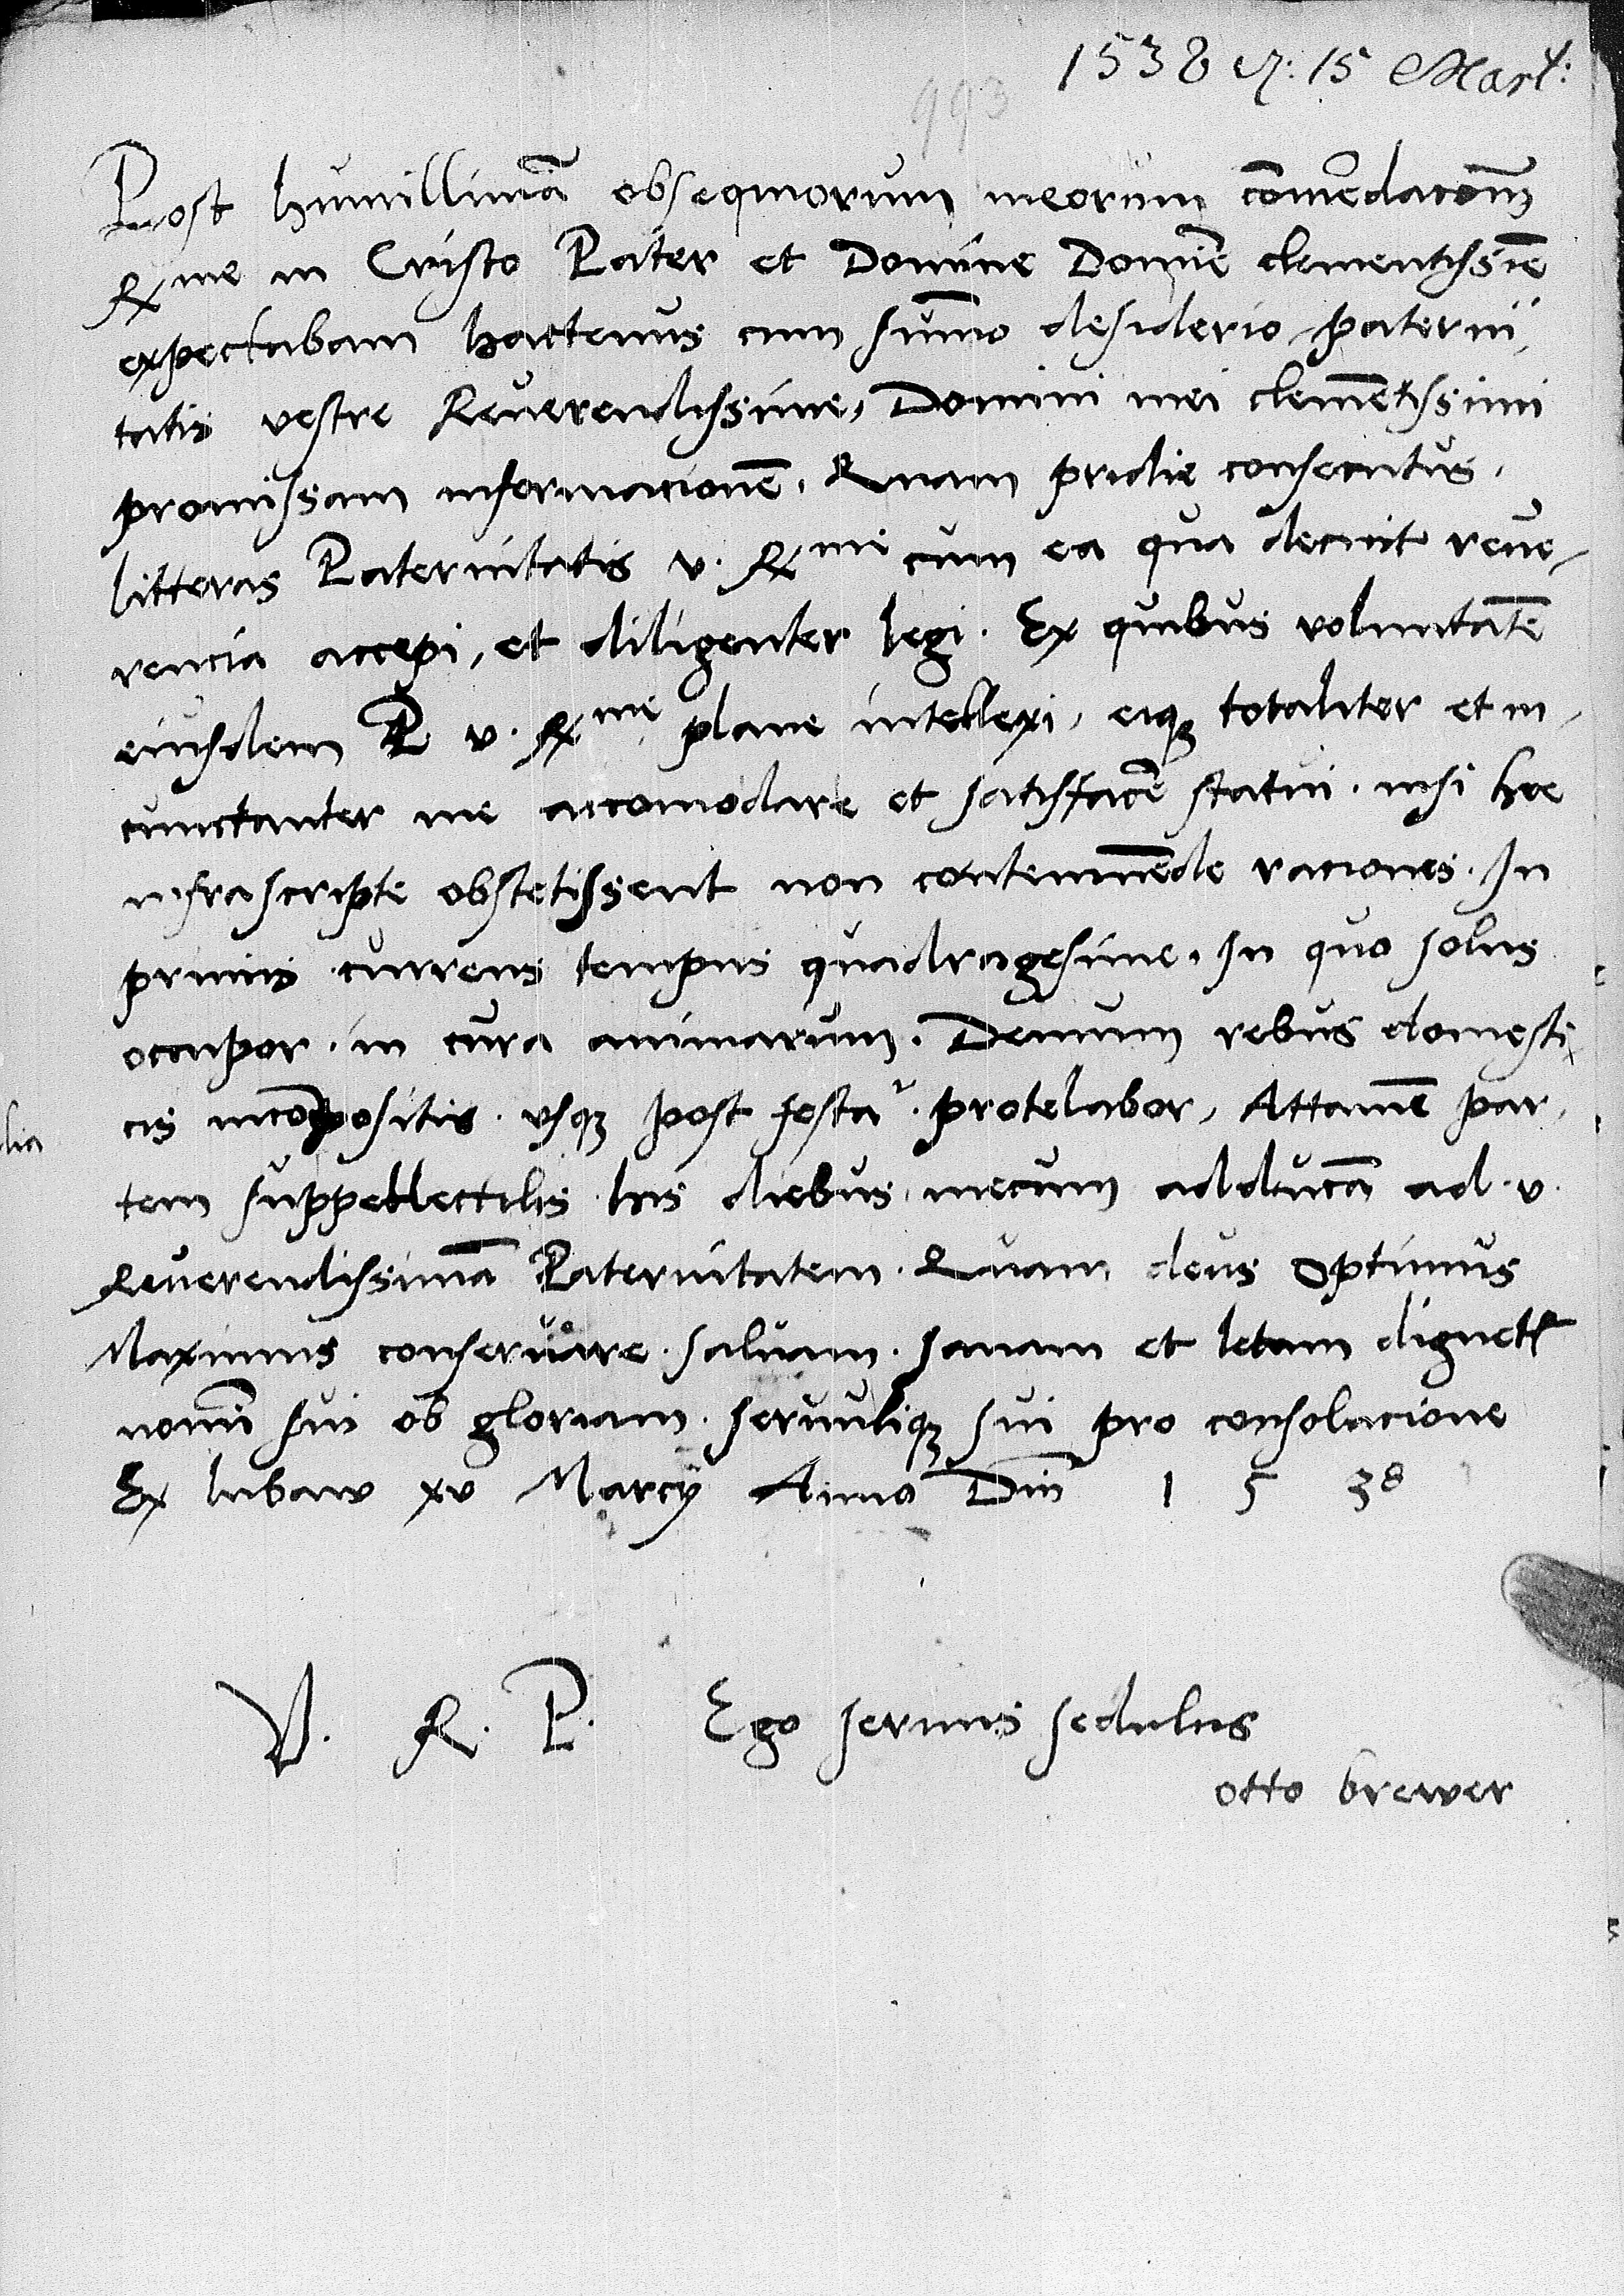 1538 d: 15 Mart:
993
Post humillimā obsequiorum meorum cōmēdacōnē
Rme in Cristo Pater et Domine Domīe clementissīe
expectabam hactenus cum sum̄o desiderio paterni,
tatis vestre Reuerendissime, Domini mei clemētissimi
promissam informacionē. Quam pridie consecutus.
litteras Paternitatis v. Rme cum ea qua decuit reue-
rencia accepi, et diligenter legi. Ex quibus voluntatē
eiusdem P v. Rme plane intellexi, eiqȝ totaliter et in-
cunctanter me accomodare et satisfacē statui. nisi hee
infrascripte obstetissent non contemnēde raciones. In
primis currens tempus quadragesime. In quo solus
occupor. in cura animarum. Demum rebus domesti
cis incōpositis. vsqȝ post festa. protelabor, Attamē par,
tem suppellectilis his diebus mecum adducā ad. v.
Reuerendissimā Paternitatem. Quam deus optimus
Maximus conseruare. saluam. sanam et letam dignetr
nomī sui ob gloriam. seruuliqȝ sui pro consolacione
Ex lubaw xv Marcij Anno Dnī 1 5 38
lia
V. R. P. Ego seruus sedulus
otto brewer